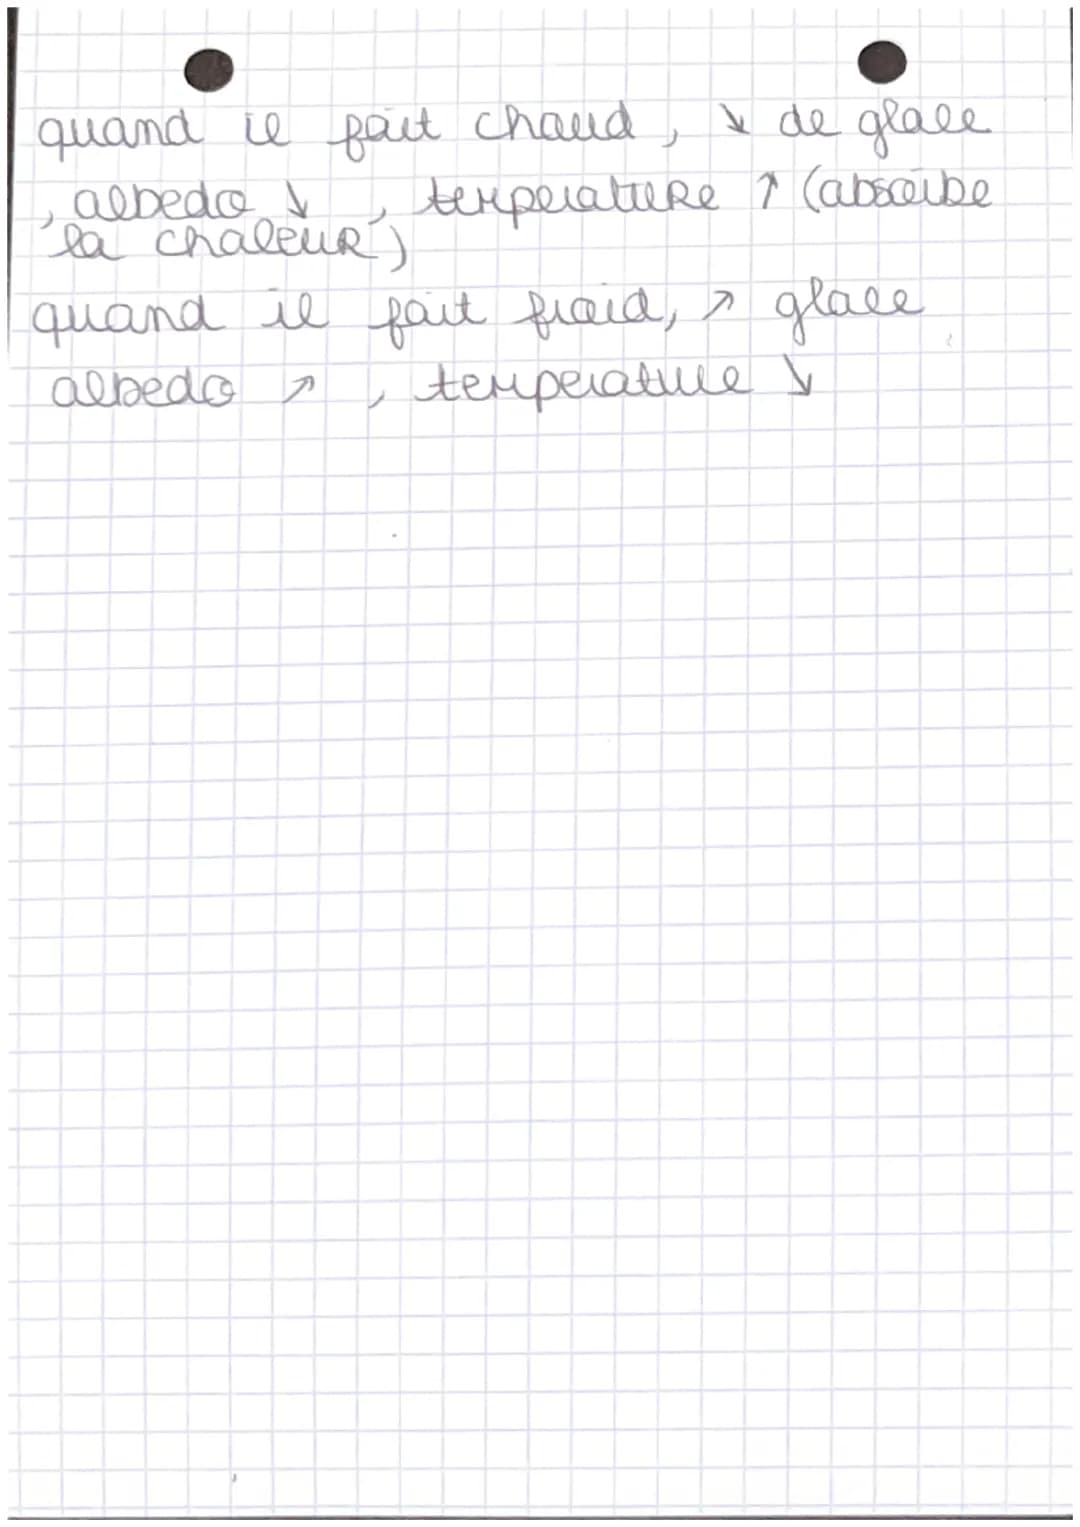 quand il fait chaud, ↘ de glace
, albedo ↓, température ↑ (absorbe
la chaleur)
quand il fait froid, ↗ glace
albedo ↗, temperature ↘